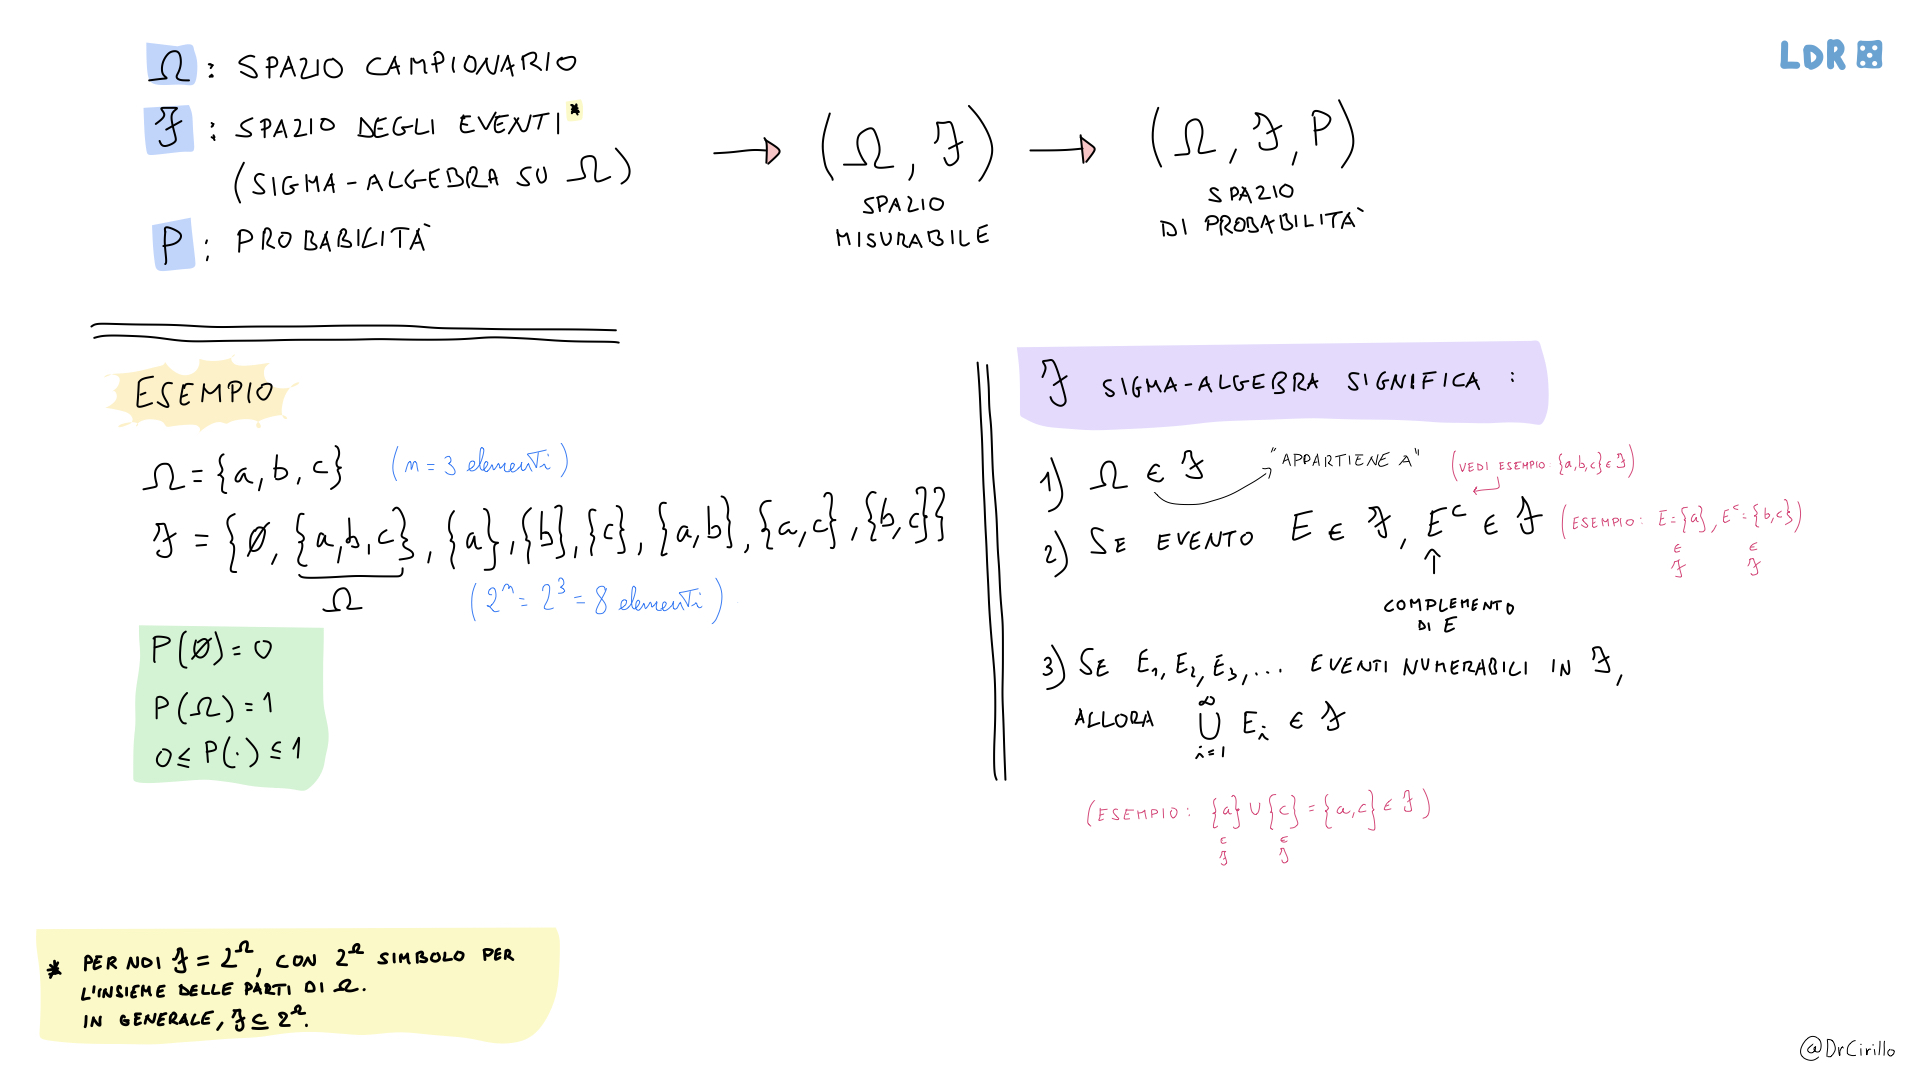 LDR
Ω : SPAZIO CAMPIONARIO
ℱ : SPAZIO DEGLI EVENTI*
(SIGMA-ALGEBRA SU Ω)
P : PROBABILITÀ
→ (Ω, ℱ) → (Ω, ℱ, P)
SPAZIO MISURABILE
SPAZIO DI PROBABILITÀ
ESEMPIO
Ω = {a, b, c} (n = 3 elementi)
ℱ = {∅, {a,b,c}, {a}, {b}, {c}, {a,b}, {a,c}, {b,c}}
Ω
(2ⁿ = 2³ = 8 elementi)
P(∅) = 0
P(Ω) = 1
0 ≤ P(·) ≤ 1
ℱ SIGMA-ALGEBRA SIGNIFICA :
1) Ω ∈ ℱ "APPARTIENE A" (VEDI ESEMPIO {a,b,c} ∈ ℱ)
2) SE EVENTO E ∈ ℱ, Eᶜ ∈ ℱ (ESEMPIO: E={a}, Eᶜ={b,c})
∈ ∈
ℱ ℱ
↑
COMPLEMENTO
DI E
3) SE E₁, E₂, E₃, ... EVENTI NUMERABILI IN ℱ,
ALLORA ⋃_{i=1}^{∞} Eᵢ ∈ ℱ
(ESEMPIO: {a} ∪ {c} = {a,c} ∈ ℱ)
∈ ∈
ℱ ℱ
* PER NOI ℱ = 2^Ω, CON 2^Ω SIMBOLO PER
L'INSIEME DELLE PARTI DI Ω.
IN GENERALE, ℱ ⊆ 2^Ω.
@DrCirillo